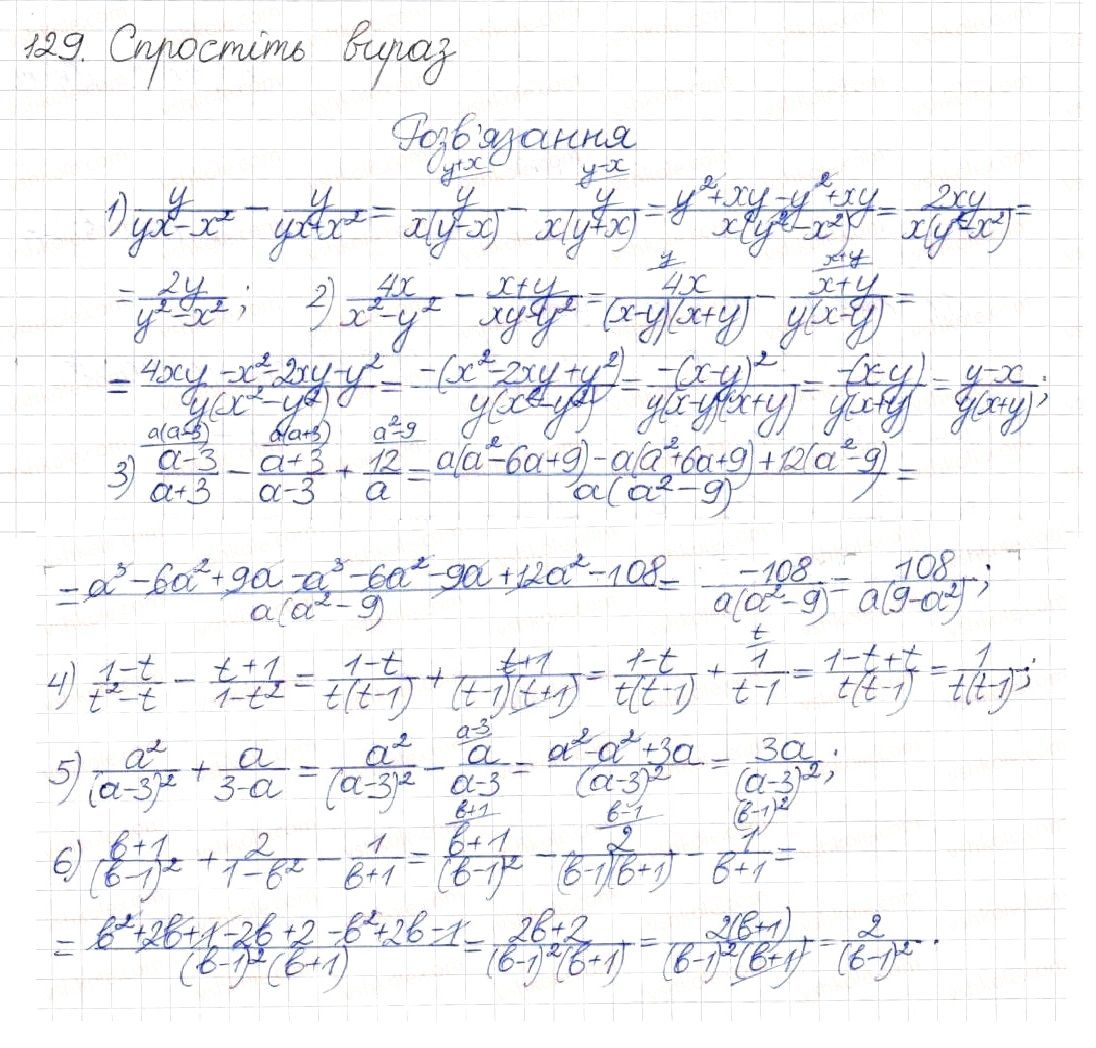 129. Спростіть вираз
Розв'язання
1) \frac{y}{yx-x^2} - \frac{y}{yx+x^2} = \frac{y}{x(y-x)}^{y+x} - \frac{y}{x(y+x)}^{y-x} = \frac{y^2+xy-y^2+xy}{x(y^2-x^2)} = \frac{2xy}{x(y^2-x^2)} =
= \frac{2y}{y^2-x^2}; 2) \frac{4x}{x^2-y^2} - \frac{x+y}{xy-y^2} = \frac{4x}{(x-y)(x+y)}^{y} - \frac{x+y}{y(x-y)}^{x+y} =
= \frac{4xy-x^2-2xy-y^2}{y(x^2-y^2)} = \frac{-(x^2-2xy+y^2)}{y(x^2-y^2)} = \frac{-(x-y)^2}{y(x-y)(x+y)} = \frac{-(x-y)}{y(x+y)} = \frac{y-x}{y(x+y)};
3) \frac{a-3}{a+3}^{a(a-3)} - \frac{a+3}{a-3}^{a(a+3)} + \frac{12}{a}^{a^2-9} = \frac{a(a^2-6a+9)-a(a^2+6a+9)+12(a^2-9)}{a(a^2-9)} =
= \frac{a^3-6a^2+9a-a^3-6a^2-9a+12a^2-108}{a(a^2-9)} = \frac{-108}{a(a^2-9)} = \frac{108}{a(9-a^2)};
4) \frac{1-t}{t^2-t} - \frac{t+1}{1-t^2} = \frac{1-t}{t(t-1)} + \frac{t+1}{(t-1)(t+1)} = \frac{1-t}{t(t-1)} + \frac{1}{t-1}^{t} = \frac{1-t+t}{t(t-1)} = \frac{1}{t(t-1)};
5) \frac{a^2}{(a-3)^2} + \frac{a}{3-a} = \frac{a^2}{(a-3)^2} - \frac{a}{a-3}^{a-3} = \frac{a^2-a^2+3a}{(a-3)^2} = \frac{3a}{(a-3)^2};
6) \frac{в+1}{(в-1)^2} + \frac{2}{1-в^2} - \frac{1}{в+1} = \frac{в+1}{(в-1)^2}^{в+1} - \frac{2}{(в-1)(в+1)}^{в-1} - \frac{1}{в+1}^{(в-1)^2} =
= \frac{в^2+2в+1-2в+2-в^2+2в-1}{(в-1)^2(в+1)} = \frac{2в+2}{(в-1)^2(в+1)} = \frac{2(в+1)}{(в-1)^2(в+1)} = \frac{2}{(в-1)^2}.